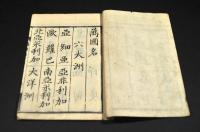 萬國名
六大洲
亞細亞 亞非利加
歐羅巴 南亞米利加
北亞米利加 大洋洲